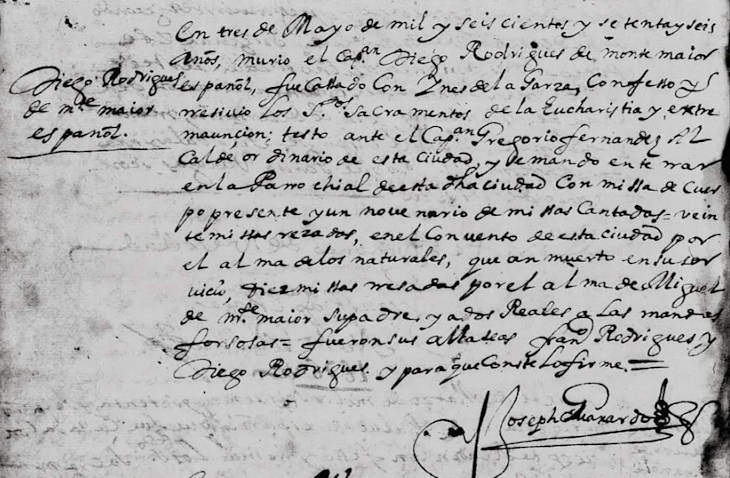 En tres de Mayo de mil y seis cientos y setenta y seis
años, murio el Cap.an Diego Rodrigues de monte maior
español, fue Cassado Con Ynes de la Garza, Confesso y
rresivio los S.tos Sacramentos de la Eucharistia y extre
mauncion; testo ante el Cap.an Gregorio fernandez Al
Calde or dinario de esta Ciudad, y demando enterrar
en la Parrochial de esta dha Ciudad Con missa de Cuer
po presente y un novenario de missas Cantadas = vein
te missas rezadas, en el Convento de esta Ciudad por
el alma de los naturales, que an muerto en su ser
vicio, Diez missas resadas por el alma de Miguel
de m.te maior su padre, y a dos Reales a las mandas
forsosas = fueron sus albaseas fran.co Rodrigues, y
Diego Rodrigues. y para que Conste lo firme. =
Joseph Guaxardo
Diego Rodrigues
de m.te maior
español.